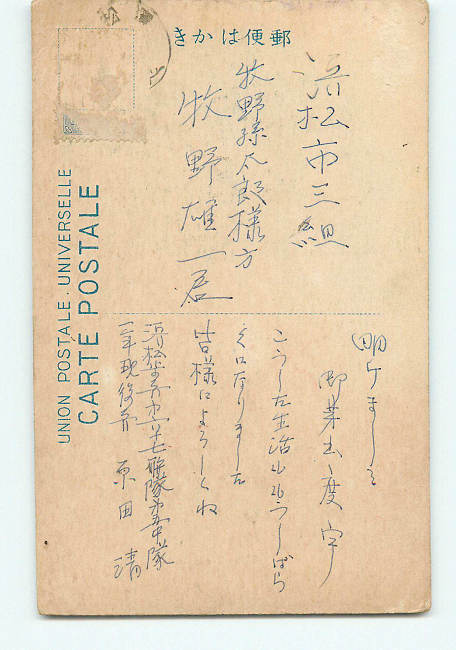 郵便はかき
浜松市三組
牧野孫太郎様方
牧野雄一君
UNION POSTALE UNIVERSELLE
CARTE POSTALE
明けまして
御芽出度う
こうした生活ももうしばら
くになりました
皆様によろしくね
浜松歩兵第六十七聯隊第五中隊
原田清